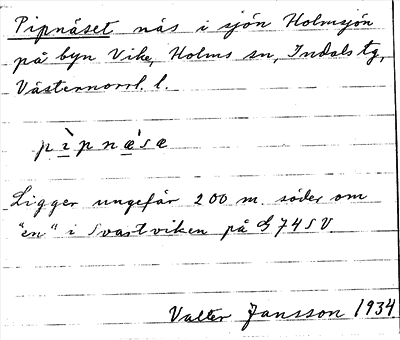 Pipnäset näs i sjön Holmsjön
på byn Vike, Holms sn, Indals tg,
Västernorrl. l.
pìpnæ'sæ
Ligger ungefär 200 m. söder om
"en" i Svartviken på G74SV.
Valter Jansson 1934